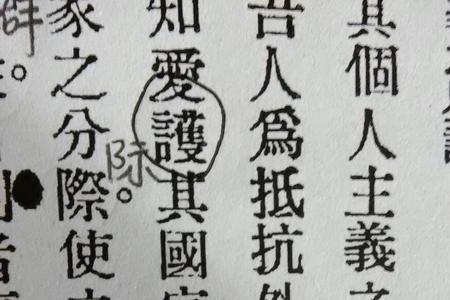 其個人主義之
吾人爲抵抗外
知愛護其國家
家之分際。使
际